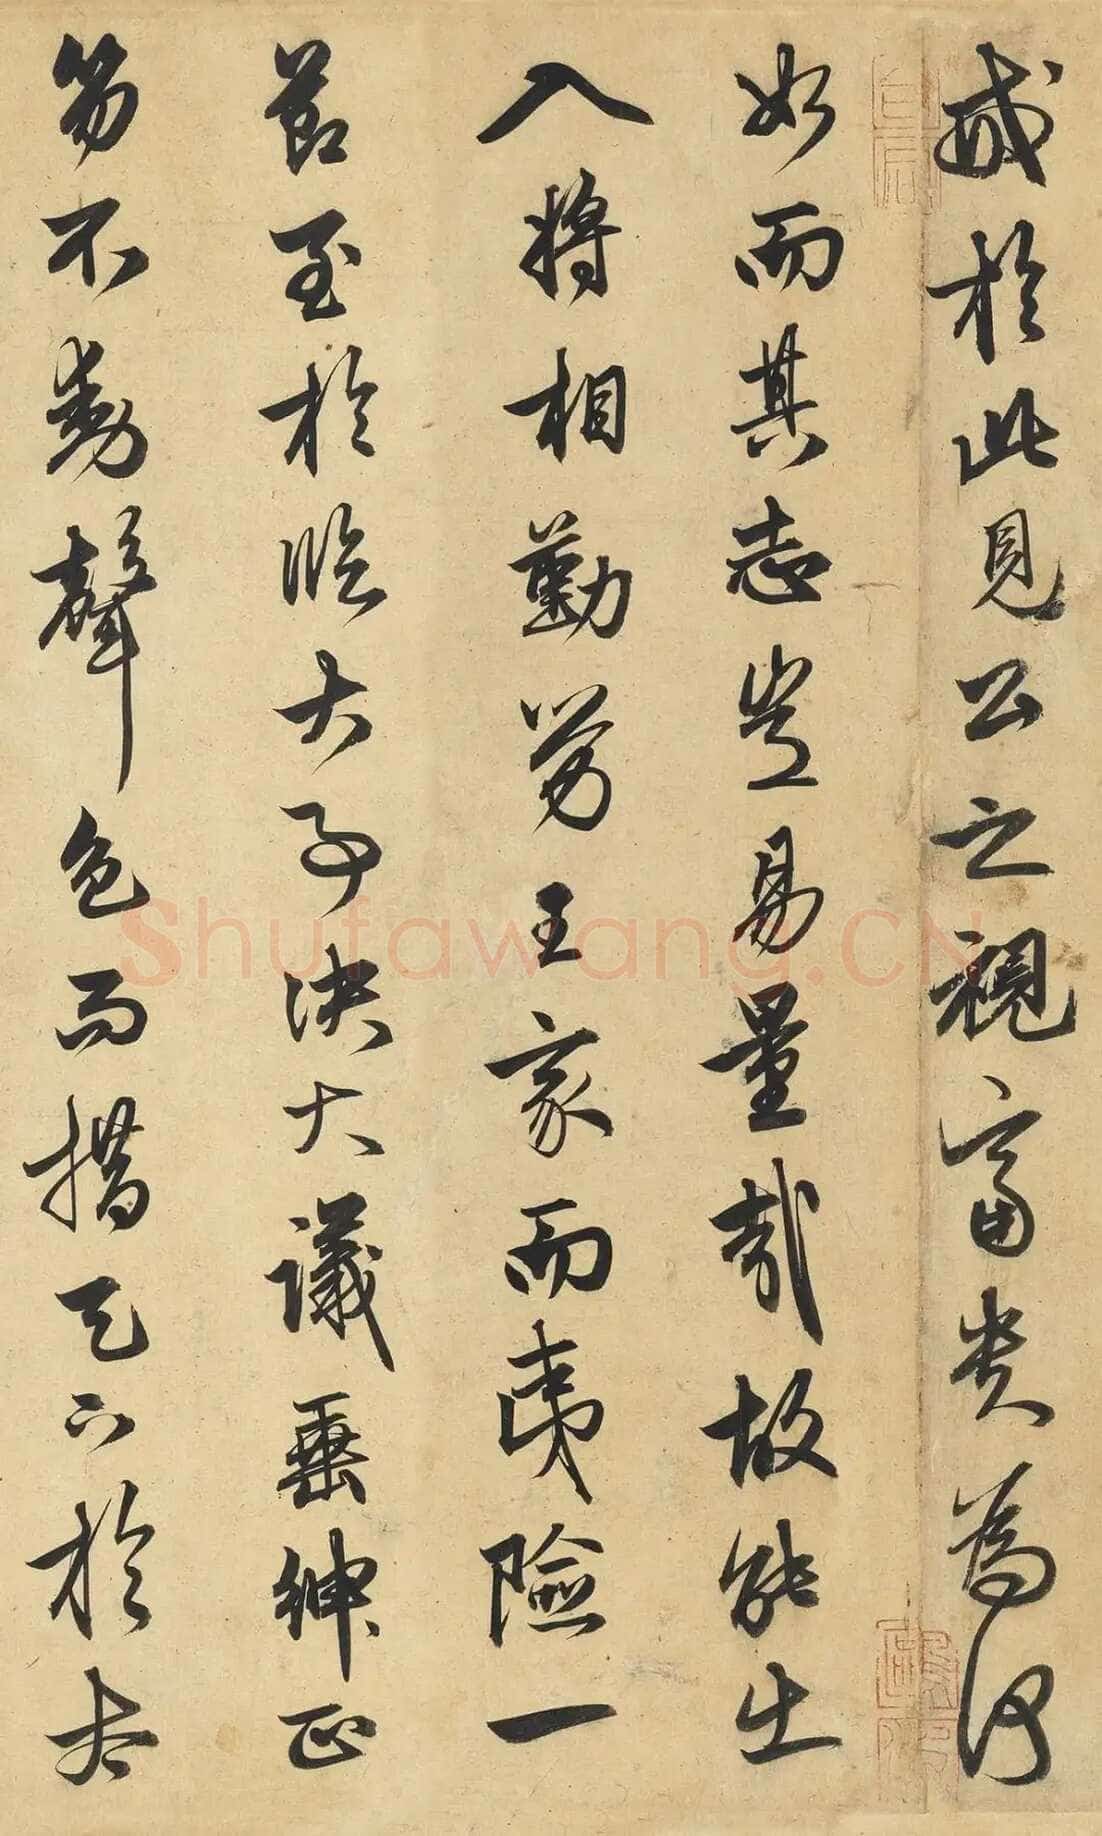 戒於此見公之視富貴為何
如而其志豈易量哉故能出
入將相勤勞王家而夷險一
節至於臨大事決大議垂紳正
笏不動聲色而措天下於泰
Shufawang.CN